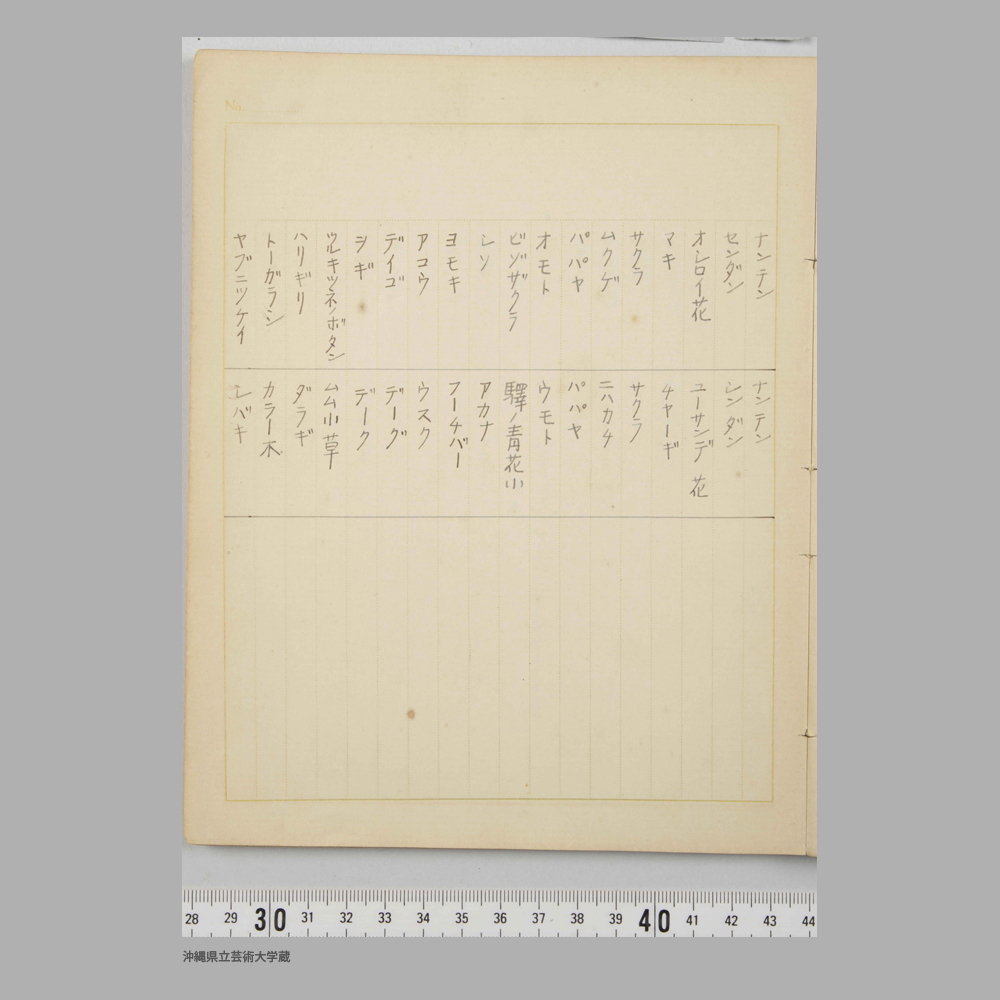 No.
ナンテン ナンテン
センダン シンダン
オシロイ花 ユーサンデ花
マキ チャーギ
サクラ サクラ
ムクゲ ニハカチ
パパヤ パパヤ
オモト ウモト
ビゾザクラ 驛ノ青花小
シソ アカナ
ヨモキ フーチバー
アコウ ウスク
デイゴ デーグ
シギ デーク
ツルキツネノボタン ムム小草
ハリギリ ダラギ
トーガラシ カラー木
ヤブニツケイ シバキ
28 29 30 31 32 33 34 35 36 37 38 39 40 41 42 43 44
沖縄県立芸術大学蔵